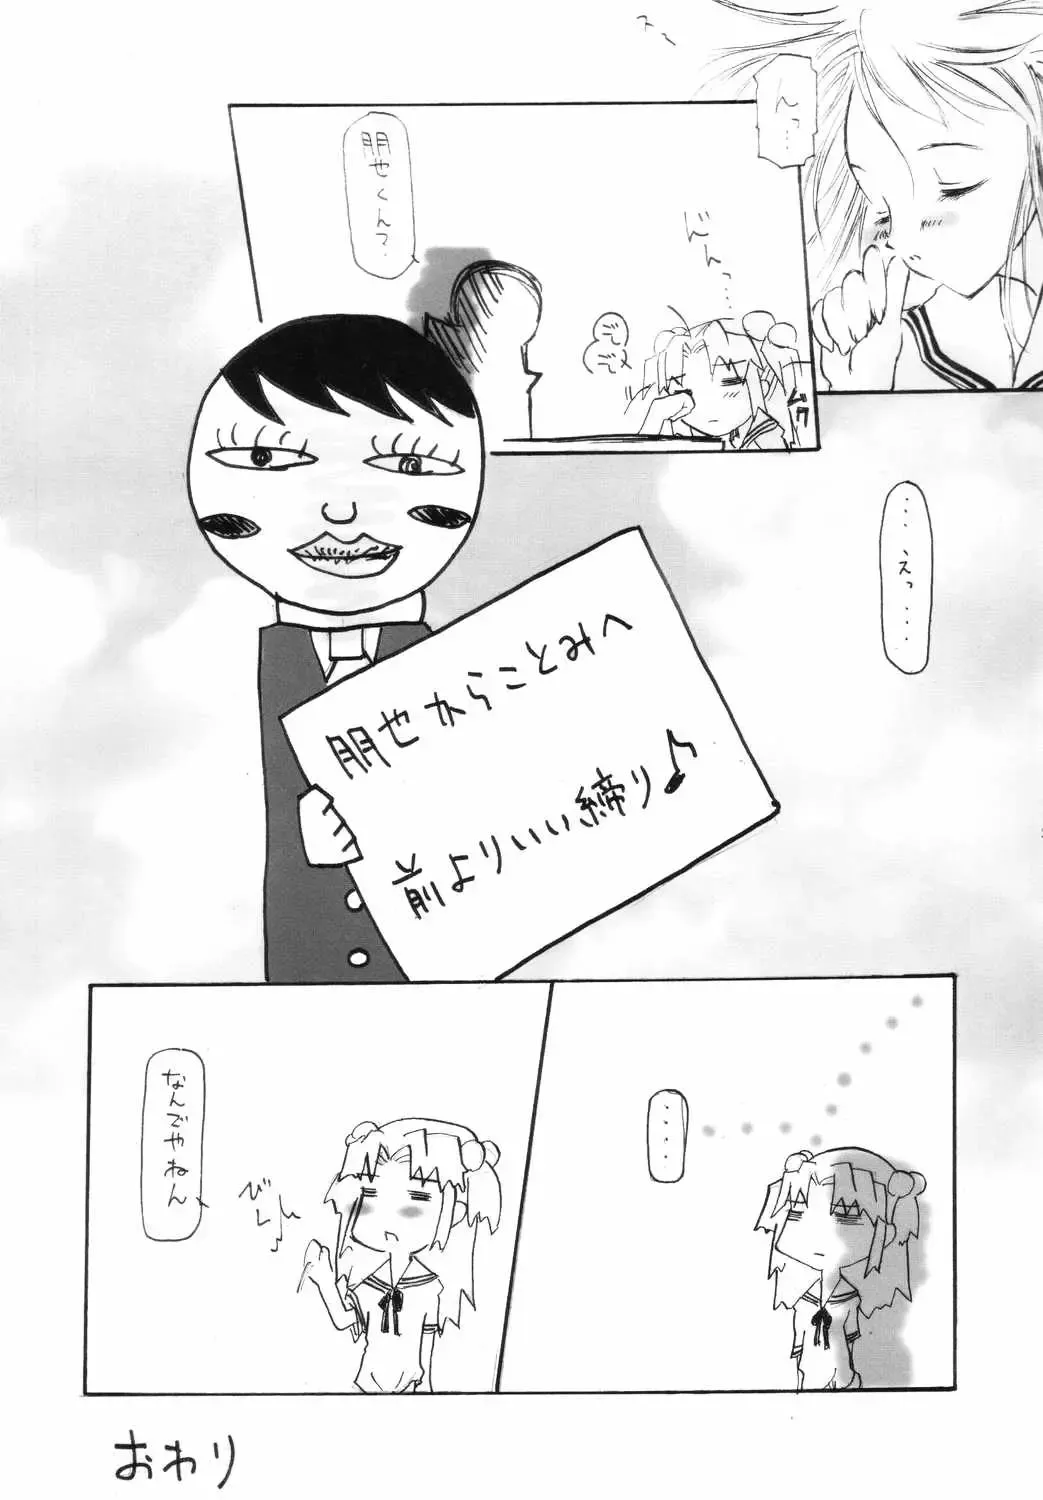 スー
んっ…
朋也くん?
じんっ……
ぞぞ
ムク
……えっ……
朋也からことみへ
前よりいい締り♪
……
なんでやねん
びしぃ
おわり